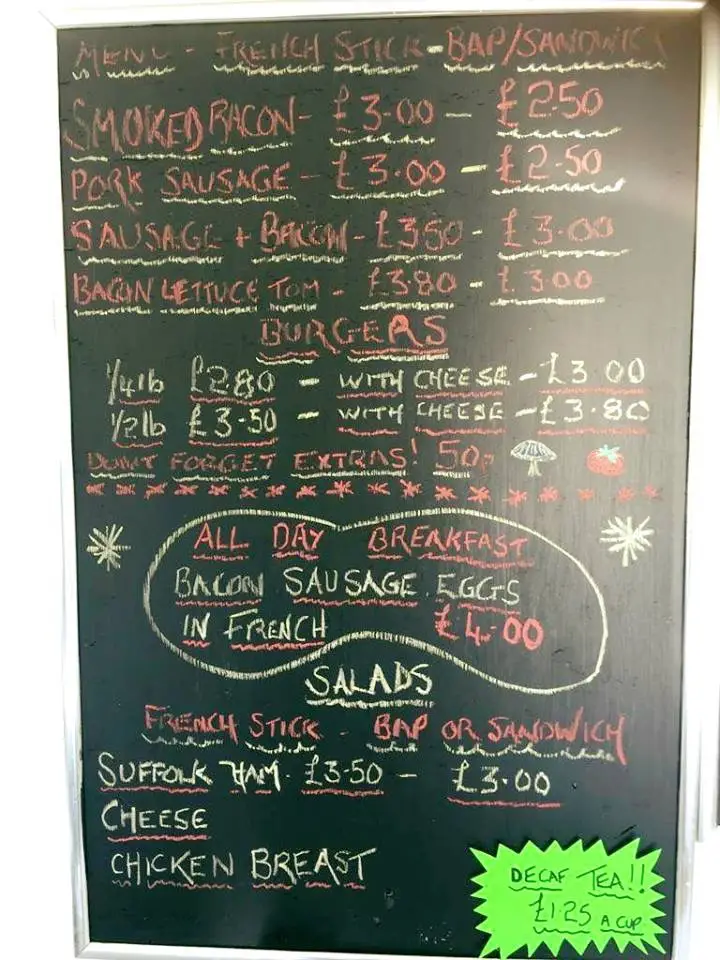 MENU - FRENCH STICK - BAP/SANDWICH
SMOKED BACON - £3.00 - £2.50
PORK SAUSAGE - £3.00 - £2.50
SAUSAGE + BACON - £3.50 - £3.00
BACON LETTUCE TOM - £3.80 - £3.00
BURGERS
1/4lb £2.80 - WITH CHEESE - £3.00
1/2lb £3.50 - WITH CHEESE - £3.80
DONT FORGET EXTRAS! 50p
ALL DAY BREAKFAST
BACON SAUSAGE EGGS
IN FRENCH £4.00
SALADS
FRENCH STICK - BAP OR SANDWICH
SUFFOLK HAM - £3.50 - £3.00
CHEESE
CHICKEN BREAST
DECAF TEA!!
£1.25 A CUP